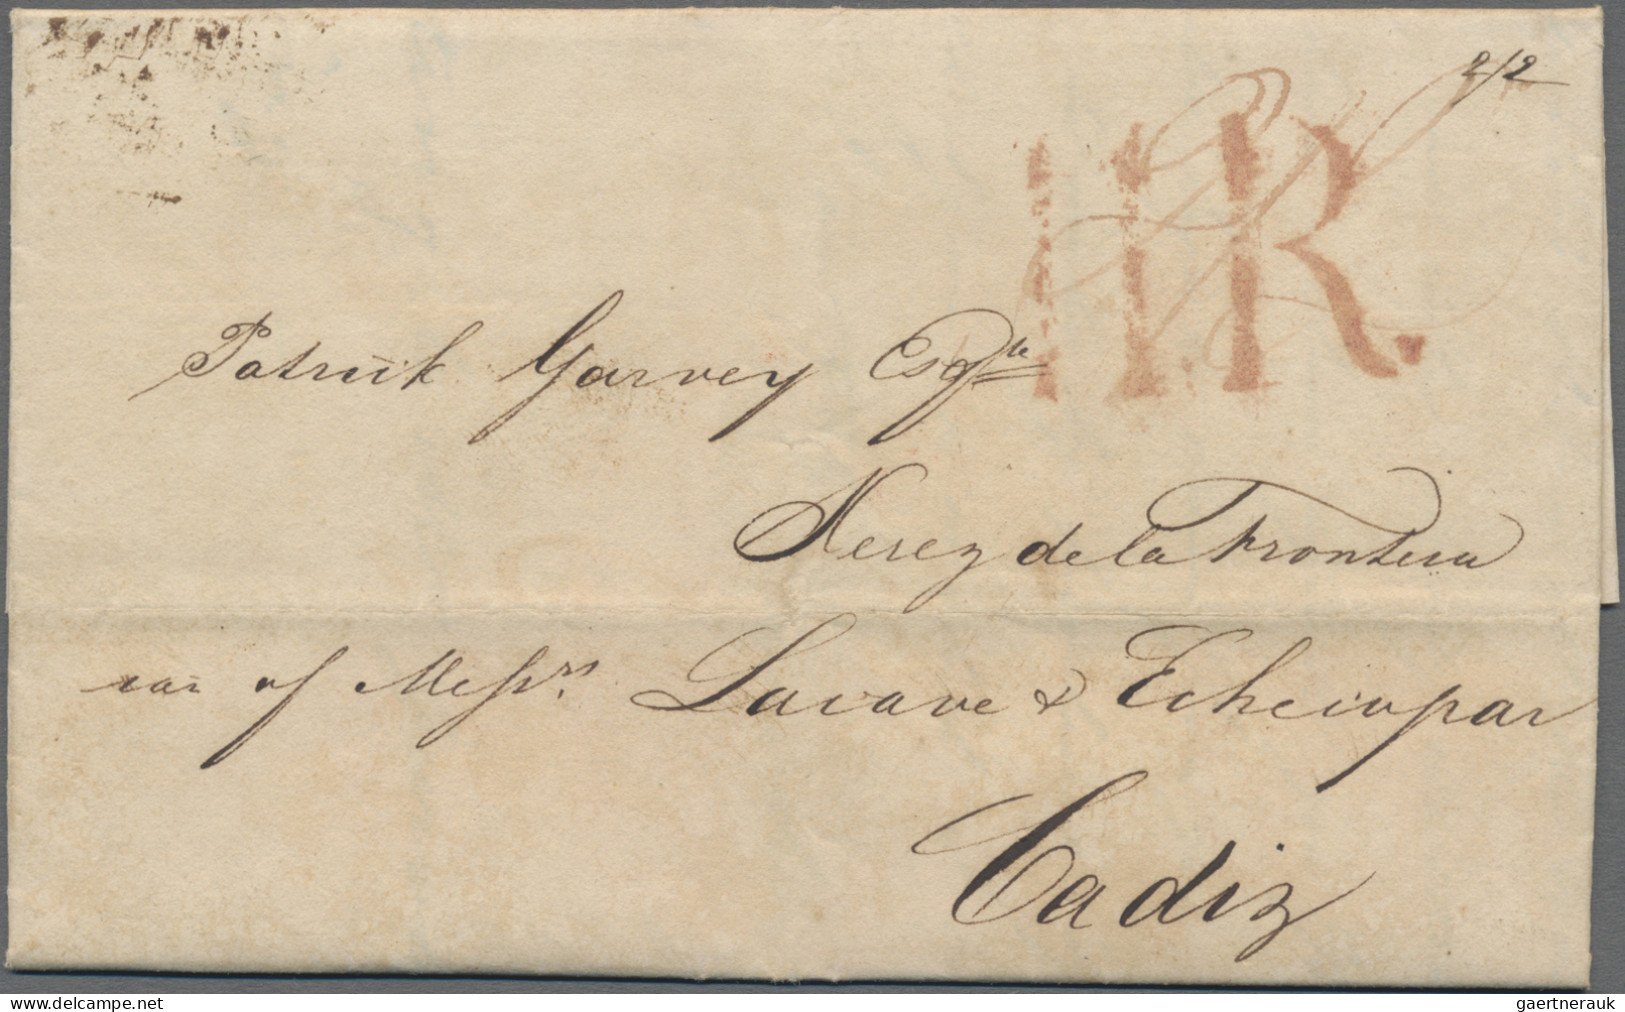 2/2
11R.
Patrick Garvey Esqre
Xerez de la Frontera
car of Messrs. Lacave & Echecopar
Cadiz
delcampe.net
gaertnerauk